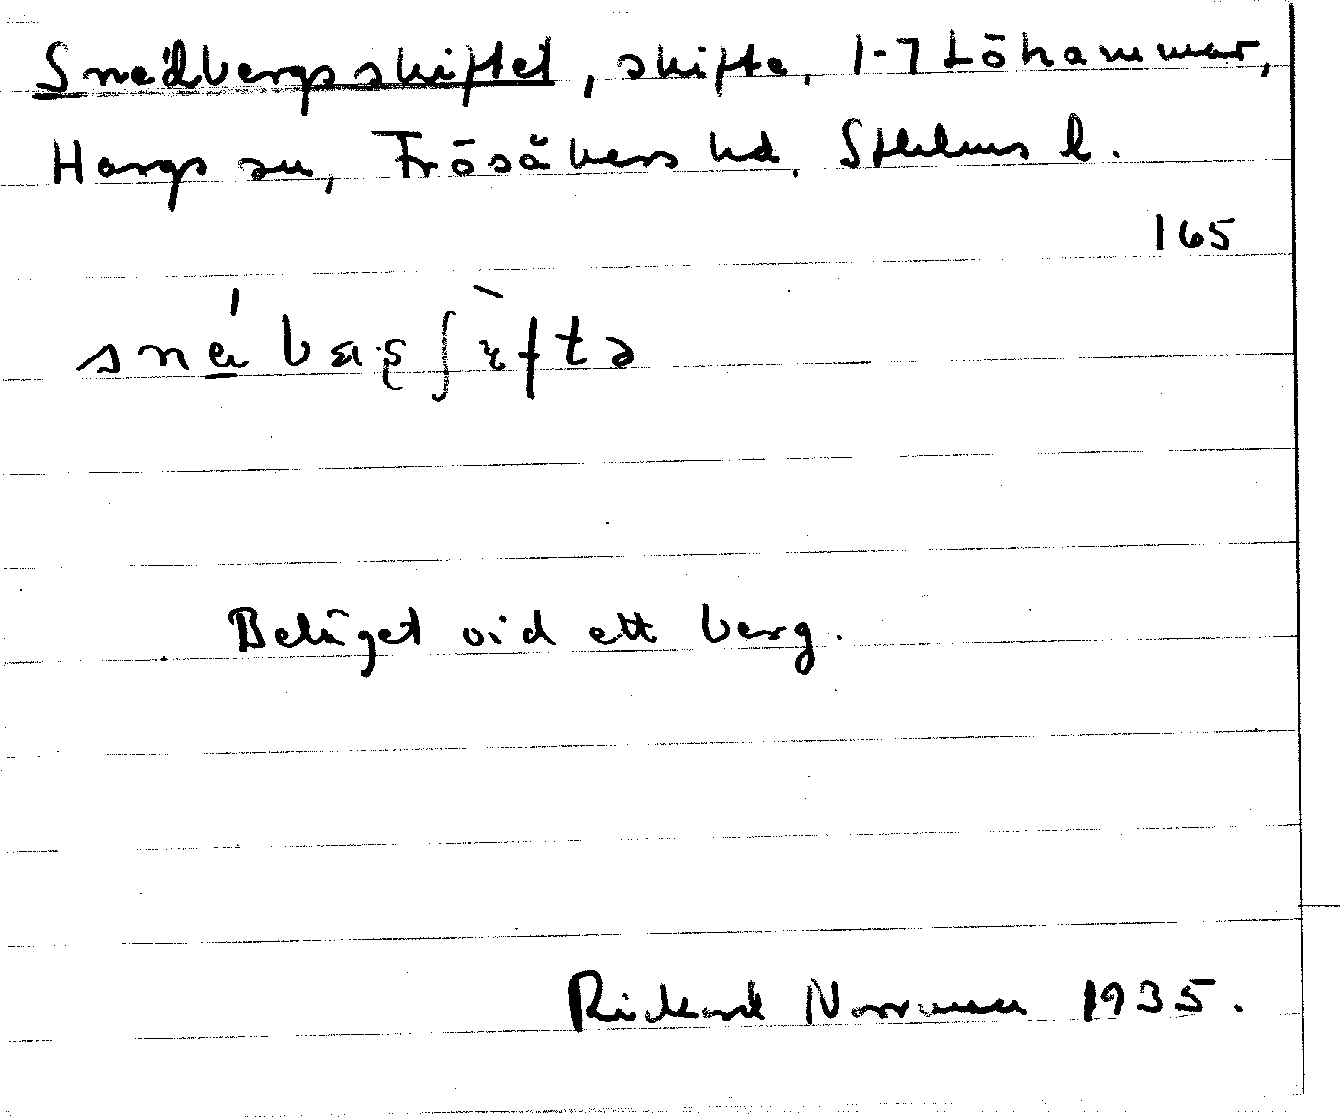 Snedbergsskiftet, skifte, 1-7 Löhammar,
Hargs sn, Frösåkers hd, Sthlms l.
165
Beläget vid ett berg.
Rickard Norrman 1935.